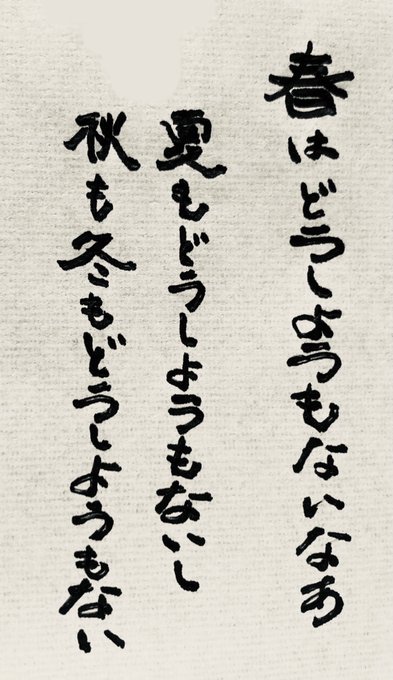 春はどうしようもないなあ
夏もどうしようもないし
秋も冬もどうしようもない